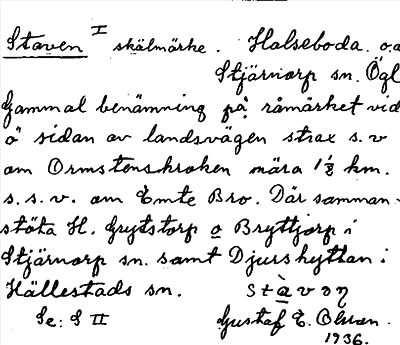 Staven I skälmärke. Halseboda. o.a
Stjärnorp sn. Ögl
Gammal benämning på råmärket vid
ö sidan av landsvägen strax s.v
om Ormstenskroken nära 1 1/8 km.
s.s.v. om Emte Bro. Där samman-
stöta H. Grytstorp o Bryttjorp i
Stjärnorp sn. samt Djurshyttan i
Hällestads sn. stàvəŋ
Se: S II Gustaf E. Olsson.
1936.